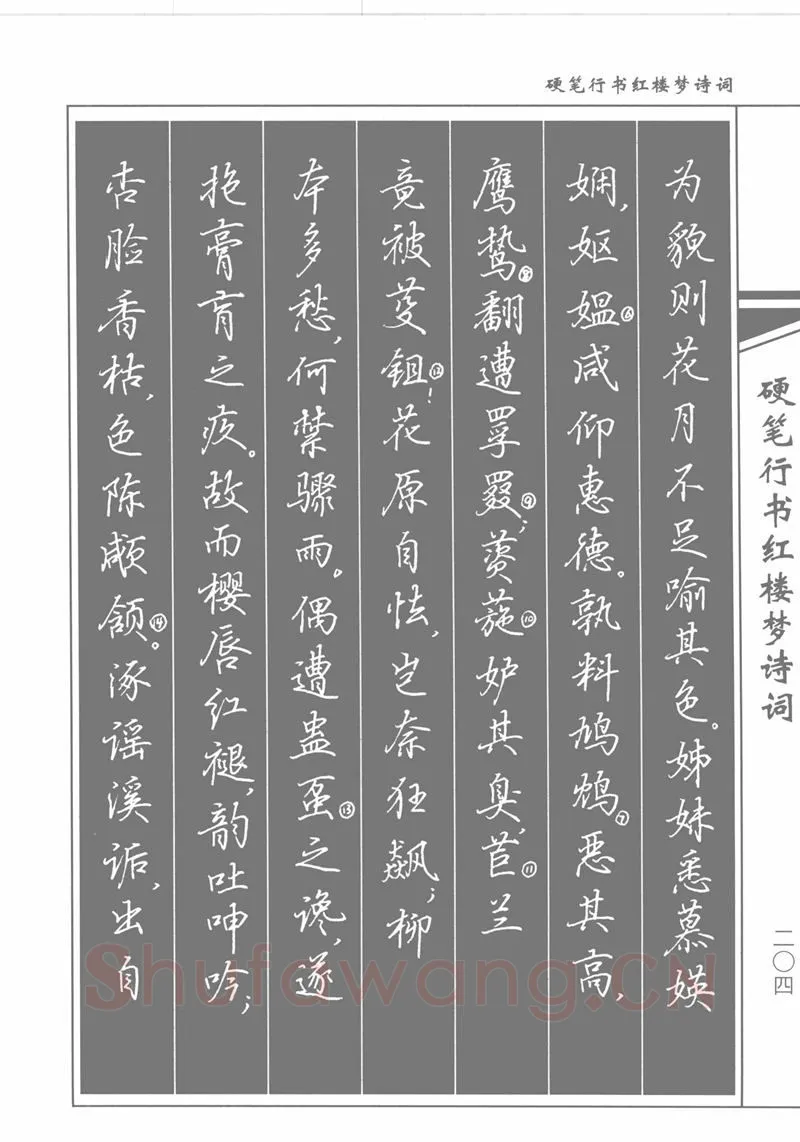 硬笔行书红楼梦诗词
为貌则花月不足喻其色。姊妹悉慕媖
娴，妪媪⑥咸仰惠德。孰料鸠鸩⑦恶其高，
鹰鸷⑧翻遭罦罬⑨；薋葹⑩妒其臭，茝⑪兰
竟被芟鉏⑫！花原自怯，岂奈狂飙；柳
本多愁，何禁骤雨。偶遭蛊虿⑬之谗，遂
抱膏肓之疚。故而樱唇红褪，韵吐呻吟；
杏脸香枯，色陈顑颔⑭。诼谣溪诟，出自
硬笔行书红楼梦诗词
二〇四
Shufawang.CN